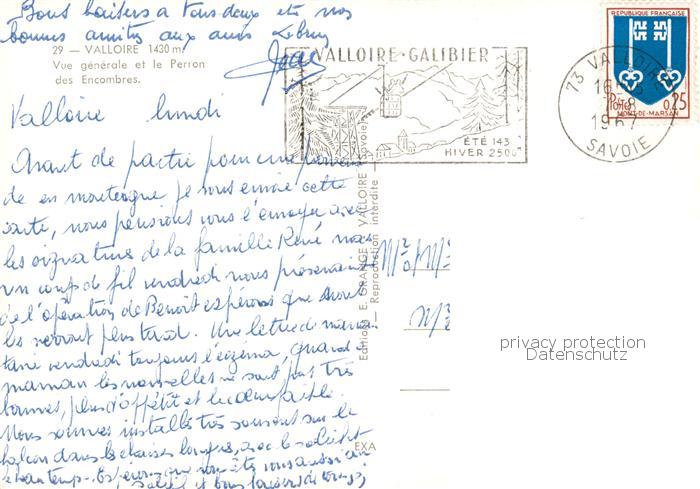 Bons baisers à tous deux et nos
bonnes amitiés aux amis Lebrun
Jean
29 — VALLOIRE 1430 m
Vue générale et le Perron
des Encombres.
VALLOIRE-GALIBIER
ÉTÉ 143
HIVER 2500
73 VALLOIRE
16-
-8
1967
SAVOIE
REPUBLIQUE FRANÇAISE
Postes 0,25
MONT-DE-MARSAN
Valloire lundi
Avant de partir pour une
de en montagne je vous envoie cette
carte, nous pensions vous l'envoyer avec
les signatures de la famille René mais
un coup de fil vendredi nous
de l'opération de Benoît espérons que nous
les verrons plus tard. Une lettre de
vendredi toujours l'eczéma, quand à
maman les nouvelles ne sont pas très
bonnes, plus d'appétit et
Nous sommes installés très souvent sur le
balcon dans les chaises longues, avec le soleil
printemps. Espérons que vous êtes vous aussi au
soleil et bons baisers de tous
Editions E. GRANGE VALLOIRE (Savoie)
— Reproduction interdite —
EXA
privacy protection
Datenschutz